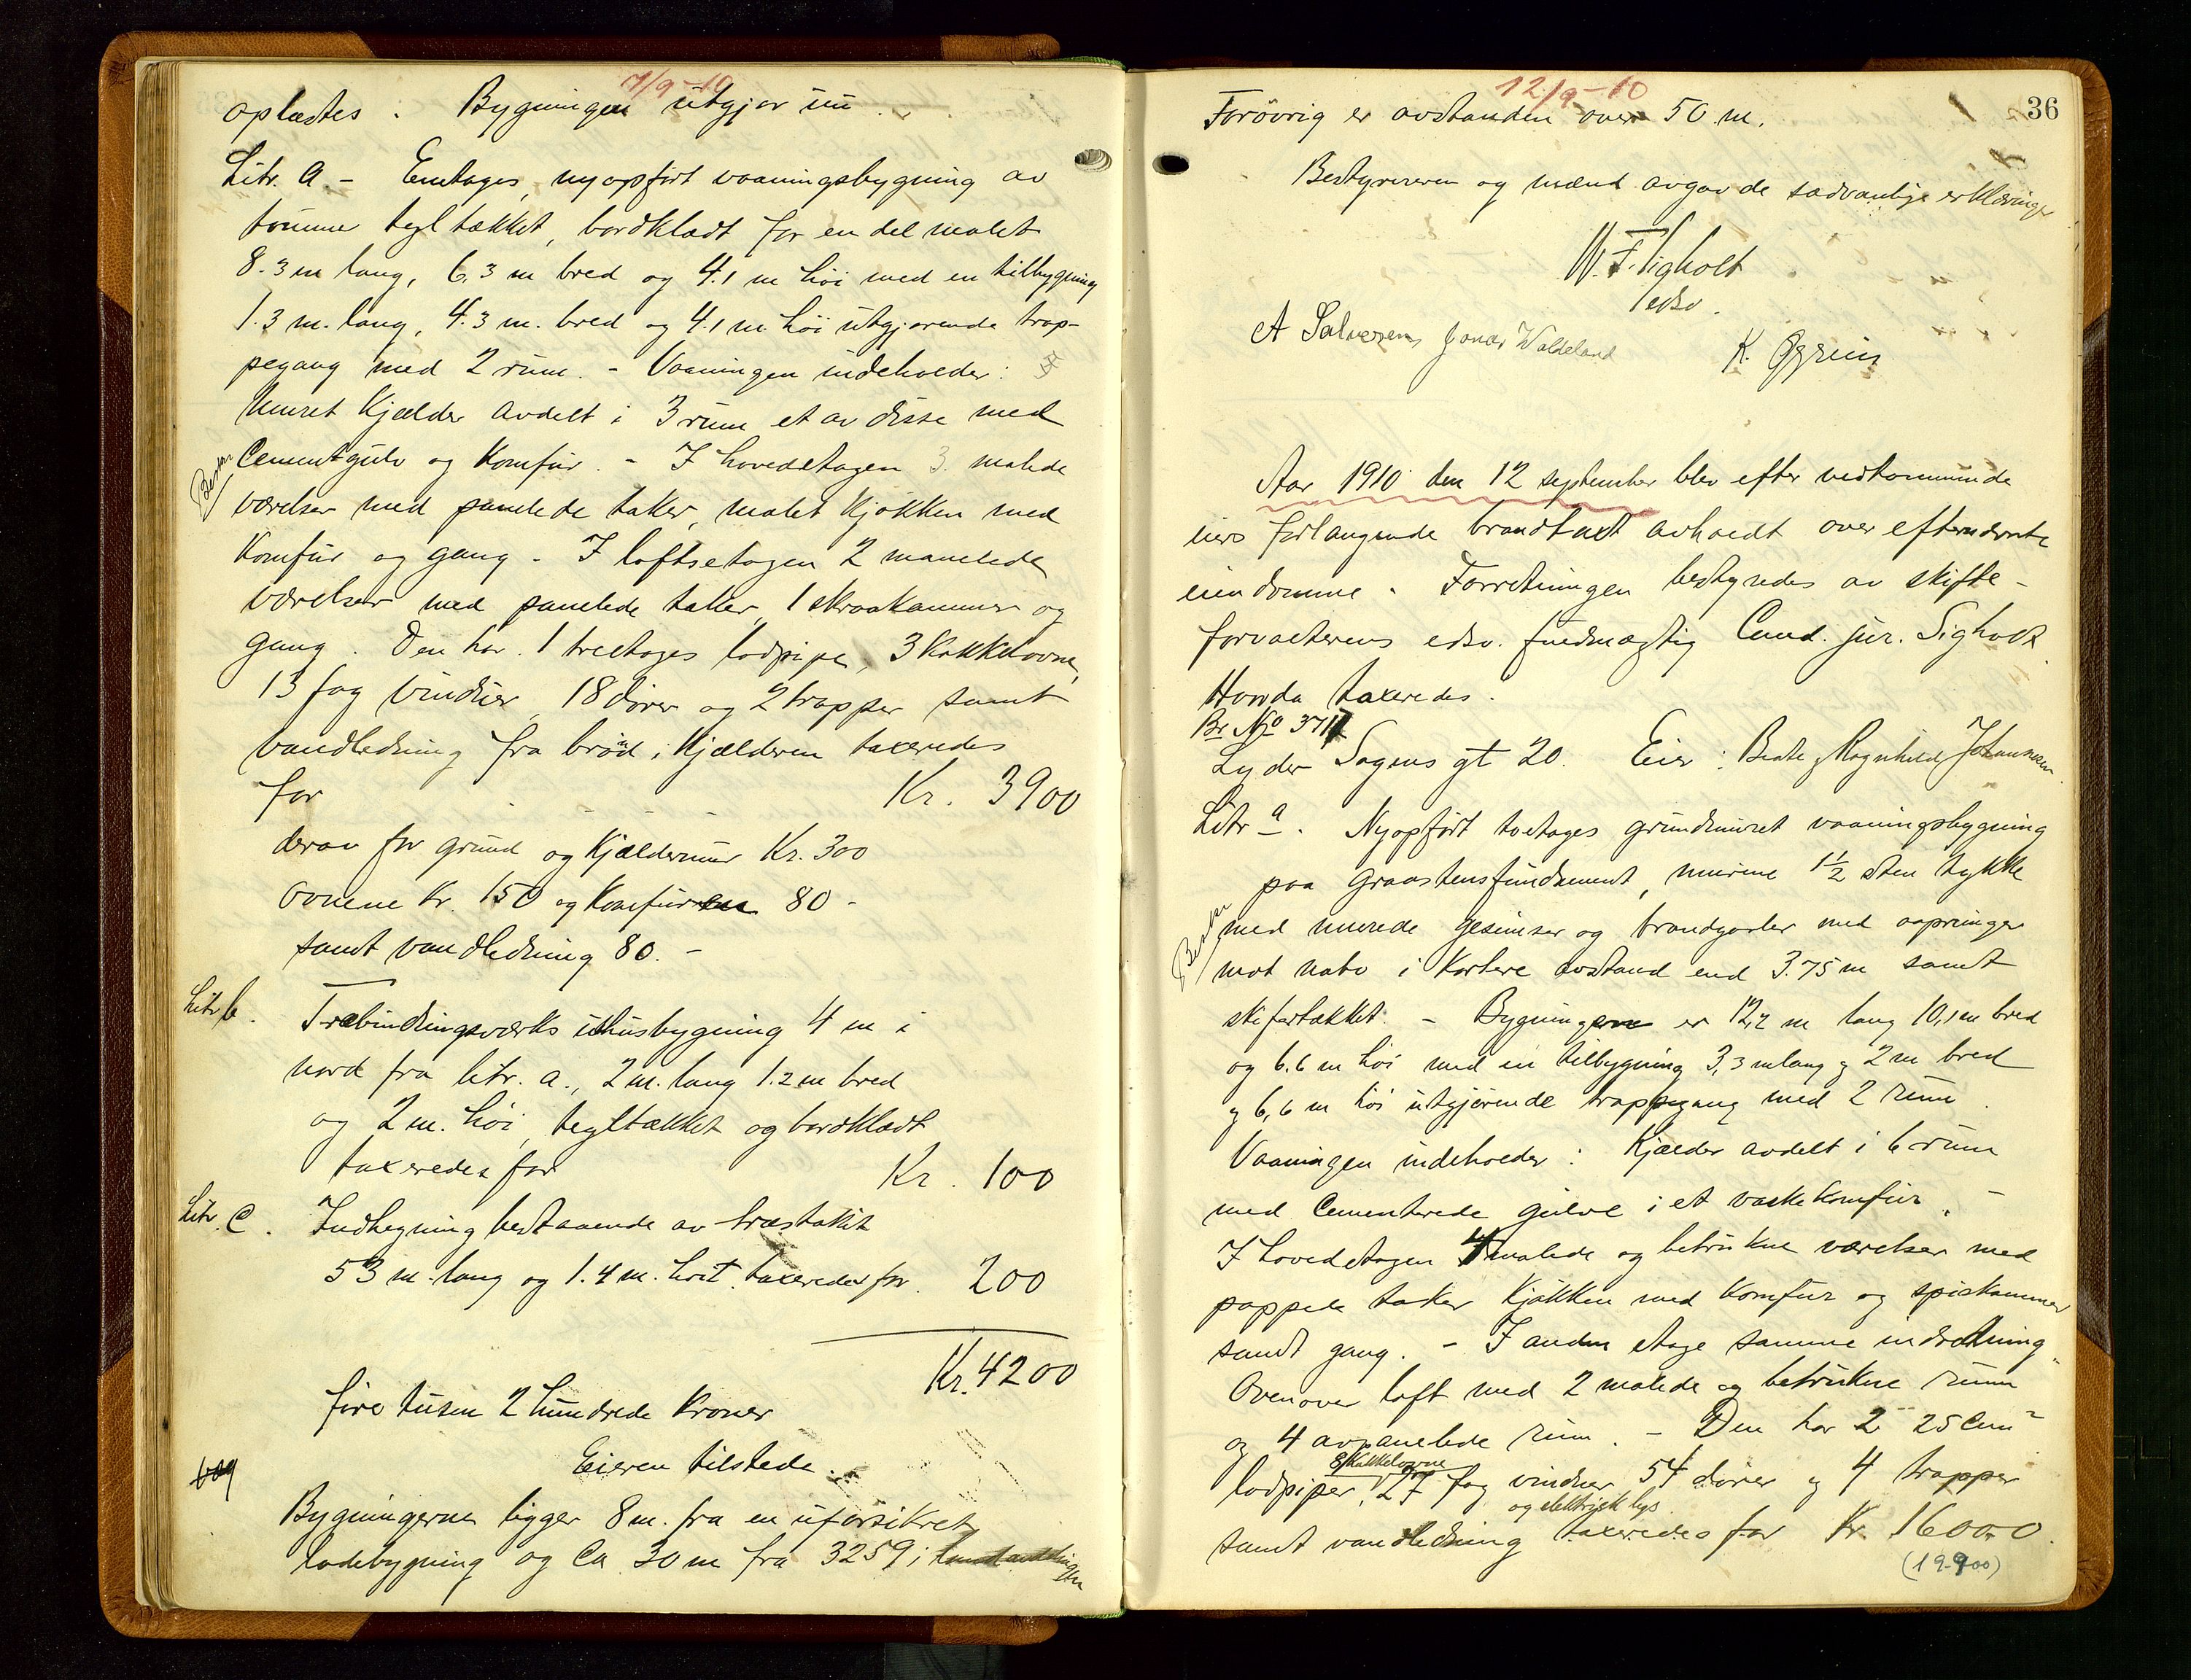 7/9-10
oplæstes. Bygningen utgjør nu
Litr. a. - Enetages, nyopført vaaningsbygning av
tømmer tegltækket, bordklædt for en del malet
8.3 m lang, 6,3 m bred og 4.1 m høi med en tilbygning
1.3 m. lang, 4.3 m. bred og 4.1 m høi utgjørende trap-
pegang med 2 rum. - Vaaningen indeholder:
Muret Kjælder avdelt i 3 rum et av disse med
Cementgulv og Komfur. - I hovedetagen 3 malede
værelser med panelede taker, malet Kjøkken med
Komfur og gang. I loftsetagen 2 malede
værelser med panelede taker, 1 skraakammer og
gang. Den har 1 treetages lodpipe, 3 Kakkelovne,
13 fag vinduer, 18 dører og 2 trapper samt
vandledning fra brønd i Kjælderen taxeredes
for Kr. 3900
derav for grund og Kjældermur Kr. 300
ovnene Kr. 150 og Komfuren 80 -
samt vandledning 80. -
Litr b. Træbindingsværks uthusbygning 4 m i
nord fra litr. a., 2 m. lang 1.2 m bred
og 2 m. høi, tegltækket og bordklædt
taxeredes for Kr. 100
Litr. C. Indhegning bestaaende av træstakit
53 m. lang og 1.4 m. høit taxeredes for 200
Kr. 4200
fire tusen 2 hundrede Kroner
Eieren tilstede.
Bygningerne ligger 8 m. fra en uforsikret
ladebygning og Ca 30 m fra 3259 i
36
12/9-10
Forøvrig er avstanden over 50 m.
Bestyreren og mænd avgav de sædvanlige erklæringer
W. F. Sigholt
edsv.
A Salvesen Jonas Waldeland K. Øgreiz
Aar 1910 den 12 september blev efter vedkommende
eiers forlangende brandtaxt avholdt over efternævnte
eiendomme. Forretningen bestyredes av skifte-
forvalterens edsv. fuldmægtig Cand. jur. Sigholt.
Hvorda taxeredes.
Br. No 3711
Lyder Sagens gt 20. Eier: Beate og Ragnhild Johannesen.
Litr a. Nyopført toetages grundmuret vaaningsbygning
paa graastensfundament, murene 1 1/2 sten tykke
med murede gesimser og brandgavler med
mot nabo i kortere avstand end 3.75 m samt
skifertækket. - Bygningerne er 12,2 m lang 10,1 m bred
og 6.6 m høi med en tilbygning 3,3 m lang og 2 m bred
og 6,6 m høi utgjørende trappegang med 2 rum.
Vaaningen indeholder: Kjælder avdelt i 6 rum
med Cementerede gulve i et vaskekomfur. -
I hovedetagen 4 malede og betrukne værelser med
pappede taker Kjøkken med Komfur og spiskammer
samt gang. - I anden etage samme indretning
Ovenover loft med 2 malede og betrukne rum
og 4 avpanelede rum. - Den har 2 25 Cm²
8 Kakkelovne
lodpiper, 27 fag vinduer 54 dører og 4 trapper
og elektrisk lys
samt vandledning taxeredes for Kr. 16000
(19.900)